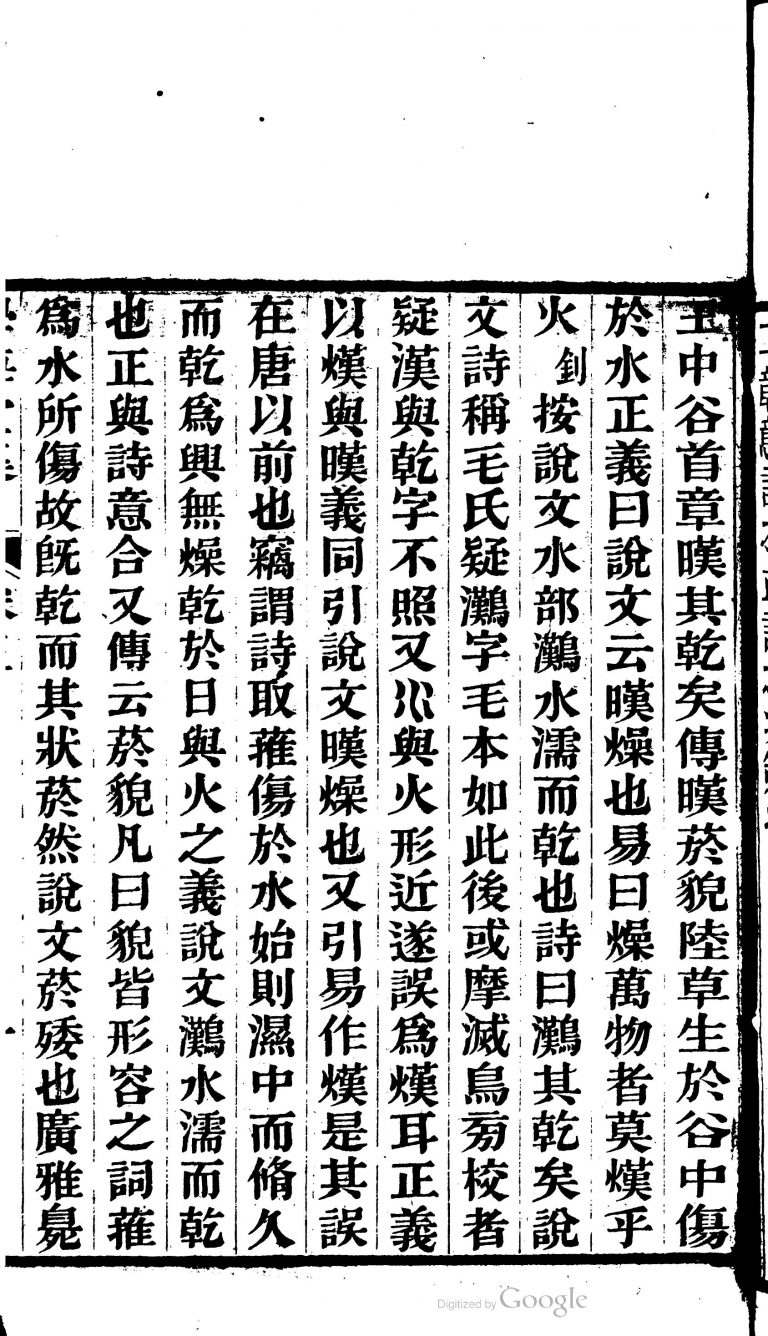 王中谷首章暵其乾矣傳暵菸貌陸草生於谷中傷
於水正義曰說文云暵燥也易曰燥萬物者莫熯乎
火釗按說文水部灘水濡而乾也詩曰灘其乾矣說
文詩稱毛氏疑灘字毛本如此後或摩滅鳥旁校者
疑漢與乾字不照又氵與火形近遂誤爲熯耳正義
以熯與暵義同引說文暵燥也又引易作熯是其誤
在唐以前也竊謂詩取蓷傷於水始則濕中而脩久
而乾爲興無燥乾於日與火之義說文灘水濡而乾
也正與詩意合又傳云菸貌凡曰貌皆形容之詞蓷
爲水所傷故旣乾而其狀菸然說文菸矮也廣雅㲋
Digitized by Google